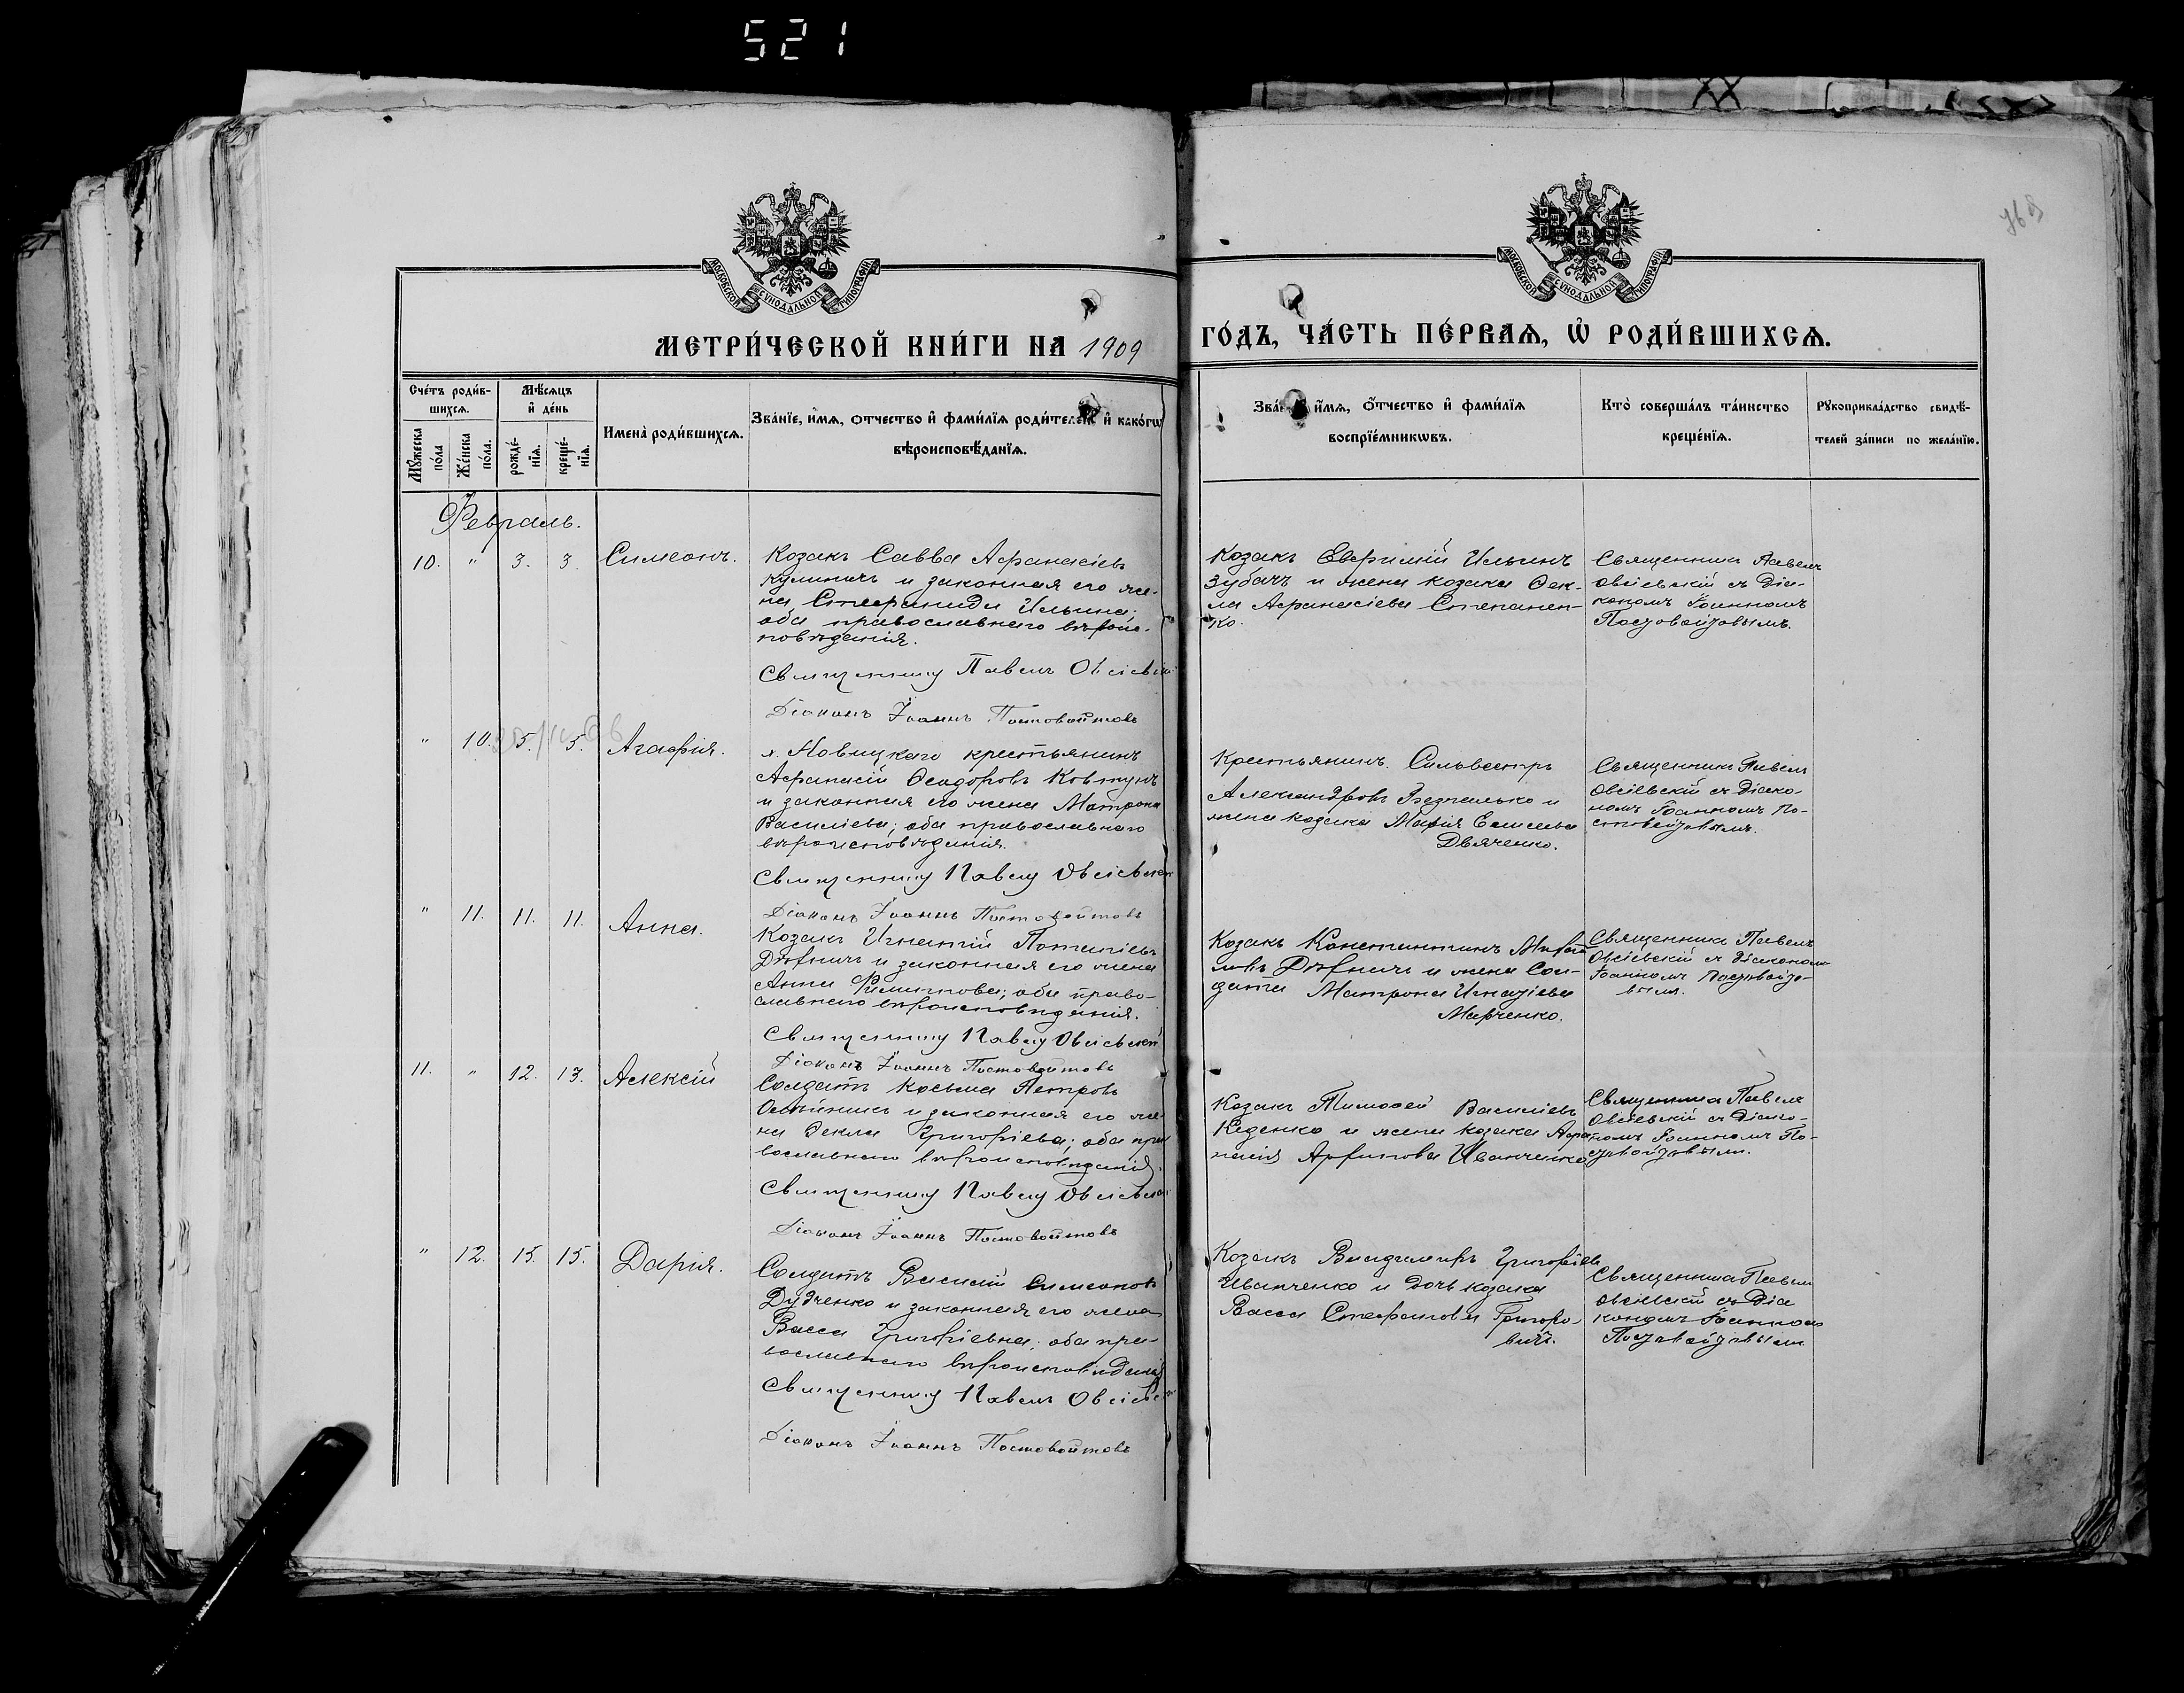 521
768
МОСКОВСКОЙ СѴНОДАЛЬНОЙ ТИПОГРАФІИ
МОСКОВСКОЙ СѴНОДАЛЬНОЙ ТИПОГРАФІИ
МЕТРИ́ЧЕСКОЙ КНИ́ГИ НА 1909 ГО́ДЪ, ЧА́СТЬ ПЕ́РВАѦ, Ѡ҆ РОДИ́ВШИХСѦ.
Сче́тъ роди́в-
шихсѧ.
Мѣ́сѧцъ
и҆ де́нь
Мꙋ́жеска по́ла
Же́нска по́ла.
рожде́-нїѧ.
креще́-нїѧ.
Имена̀ роди́вшихсѧ.
Зва́нїе, и҆́мѧ, ѻ҆́тчество и҆ фами́лїѧ роди́телей и҆ како́гѡ
вѣроисповѣ́данїѧ.
Зва́нїе, и҆́мѧ, ѻ҆́тчество и҆ фами́лїѧ
воспрїе́мникѡвъ.
Кто̀ соверша́лъ та́инство
креще́нїѧ.
Рꙋкоприкла́дство свидѣ́-
телей за́писи по жела́нїю.
Февраль.
10. " 3. 3. Симеонъ.
Козакъ Савва Афанасіевъ
Кулиничъ и законная его же-
на Стефанида Ильина;
оба православнаго вѣроис-
повѣданія.
Священникъ Павелъ Овсіевскій
Діаконъ Іоаннъ Постовойтовъ
Козакъ Евфимій Ильинъ
Зубачъ и жена козака Ѳек-
ла Афанасіева Степанен-
ко.
Священникъ Павелъ
Овсіевскій съ Діа-
кономъ Іоанномъ
Постовойтовымъ.
" 10. 5. 5. Агафія.
х. Новицкаго крестьянинъ
Афанасій Ѳеодоровъ Ковтунъ
и законная его жена Матрона
Василіева; оба православнаго
вѣроисповѣданія.
Священникъ Павелъ Овсіевскій
Діаконъ Іоаннъ Постовойтовъ
Крестьянинъ Сильвестръ
Александровъ и
жена козака Марія Елисеева
Дьяченко.
Священникъ Павелъ
Овсіевскій съ Діако-
номъ Іоанномъ По-
стовойтовымъ.
" 11. 11. 11. Анна.
Козакъ Игнатій Потапіевъ
и законная его жена
Анна Филиппова; оба право-
славнаго вѣроисповѣданія.
Священникъ Павелъ Овсіевскій
Діаконъ Іоаннъ Постовойтовъ
Козакъ Константинъ Михай-
ловъ и жена Сол-
дата Матрона Игнатіева
Марченко.
Священникъ Павелъ
Овсіевскій съ Діакономъ
Іоанномъ Постовойто-
вымъ.
11. " 12. 13. Алексій
Солдатъ Косьма Петровъ
Олейникъ и законная его же-
на Ѳекла Григоріева; оба пра-
вославнаго вѣроисповѣданія.
Священникъ Павелъ Овсіевскій
Діаконъ Іоаннъ Постовойтовъ
Козакъ Тимоѳей Василіевъ
Кеденко и жена козака Афа-
насія Иванченко
Священникъ Павелъ
Овсіевскій съ Діако-
номъ Іоанномъ По-
стовойтовымъ.
" 12. 15. 15. Дарія.
Солдатъ Василій Симеоновъ
Дудченко и законная его жена
Васса Григоріевна; оба пра-
вославнаго вѣроисповѣданія
Священникъ Павелъ Овсіевскій
Діаконъ Іоаннъ Постовойтовъ
Козакъ Владимиръ Григоріевъ
Иванченко и дочь козака
Васса Стефанова Григоро-
вичъ.
Священникъ Павелъ
Овсіевскій съ Діа
кономъ Іоанномъ
Постовойтовымъ